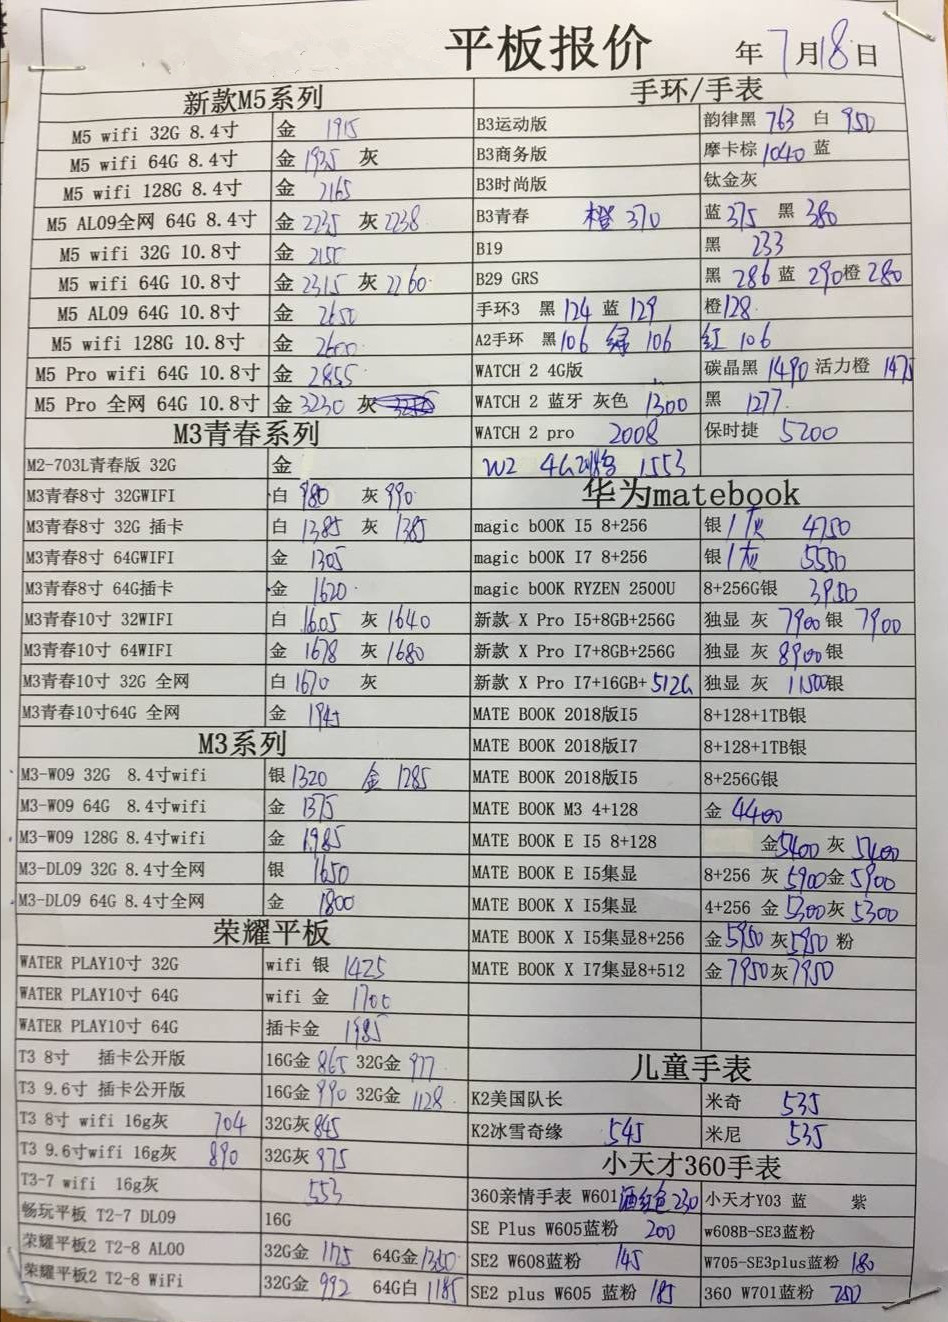 平板报价 年7月18日
新款M5系列
M5 wifi 32G 8.4寸 金 1915
M5 wifi 64G 8.4寸 金 1935 灰
M5 wifi 128G 8.4寸 金 2165
M5 AL09全网 64G 8.4寸 金 2235 灰 2238
M5 wifi 32G 10.8寸 金
M5 wifi 64G 10.8寸 金 2315 灰 2260
M5 AL09 64G 10.8寸 金 2650
M5 wifi 128G 10.8寸 金 2600
M5 Pro wifi 64G 10.8寸 金 2855
M5 Pro 全网 64G 10.8寸 金 3230 灰
M3青春系列
M2-703L青春版 32G 金
M3青春8寸 32GWIFI 白 980 灰 990
M3青春8寸 32G 插卡 白 1385 灰 1385
M3青春8寸 64GWIFI 金 1305
M3青春8寸 64G插卡 金 1620
M3青春10寸 32WIFI 白 1605 灰 1640
M3青春10寸 64WIFI 金 1678 灰 1680
M3青春10寸 32G 全网 白 1670 灰
M3青春10寸64G 全网 金 1945
M3系列
M3-W09 32G 8.4寸wifi 银 1320 金 1285
M3-W09 64G 8.4寸wifi 金 1375
M3-W09 128G 8.4寸wifi 金 1985
M3-DL09 32G 8.4寸全网 银 1650
M3-DL09 64G 8.4寸全网 金 1800
荣耀平板
WATER PLAY10寸 32G wifi 银 1425
WATER PLAY10寸 64G wifi 金 1700
WATER PLAY10寸 64G 插卡金 1985
T3 8寸 插卡公开版 16G金 865 32G金 977
T3 9.6寸 插卡公开版 16G金 990 32G金 1128
T3 8寸 wifi 16g灰 704 32G灰 845
T3 9.6寸wifi 16g灰 890 32G灰 975
T3-7 wifi 16g灰 553
畅玩平板 T2-7 DL09 16G
荣耀平板2 T2-8 AL00 32G金 1175 64G金 1350
荣耀平板2 T2-8 WiFi 32G金 992 64G白 1185
手环/手表
B3运动版 韵律黑 763 白 950
B3商务版 摩卡棕 1040 蓝
B3时尚版 钛金灰
B3青春 橙 370 蓝 375 黑 380
B19 黑 233
B29 GRS 黑 286 蓝 290 橙 280
手环3 黑 124 蓝 129 橙 128
A2手环 黑 106 绿 106 红 106
WATCH 2 4G版 碳晶黑 1490 活力橙 1475
WATCH 2 蓝牙 灰色 1300 黑 1277
WATCH 2 pro 2008 保时捷 5200
W2 4G 1553
华为matebook
magic bOOK I5 8+256 银/灰 4750
magic bOOK I7 8+256 银/灰 5550
magic bOOK RYZEN 2500U 8+256G银 3950
新款 X Pro I5+8GB+256G 独显 灰 7900 银 7900
新款 X Pro I7+8GB+256G 独显 灰 8900 银
新款 X Pro I7+16GB+ 512G 独显 灰 11500 银
MATE BOOK 2018版I5 8+128+1TB银
MATE BOOK 2018版I7 8+128+1TB银
MATE BOOK 2018版I5 8+256G银
MATE BOOK M3 4+128 金 4400
MATE BOOK E I5 8+128 金 5400 灰 5400
MATE BOOK E I5集显 8+256 灰 5900 金 5900
MATE BOOK X I5集显 4+256 金 5300 灰 5300
MATE BOOK X I5集显8+256 金 5950 灰 5950 粉
MATE BOOK X I7集显8+512 金 7950 灰 7950
儿童手表
K2美国队长 米奇 535
K2冰雪奇缘 545 米尼 535
小天才360手表
360亲情手表 W601 酒红色 230 小天才Y03 蓝 紫
SE Plus W605蓝粉 200 w608B-SE3蓝粉
SE2 W608蓝粉 145 W705-SE3plus蓝粉 180
SE2 plus W605 蓝粉 185 360 W701蓝粉 250